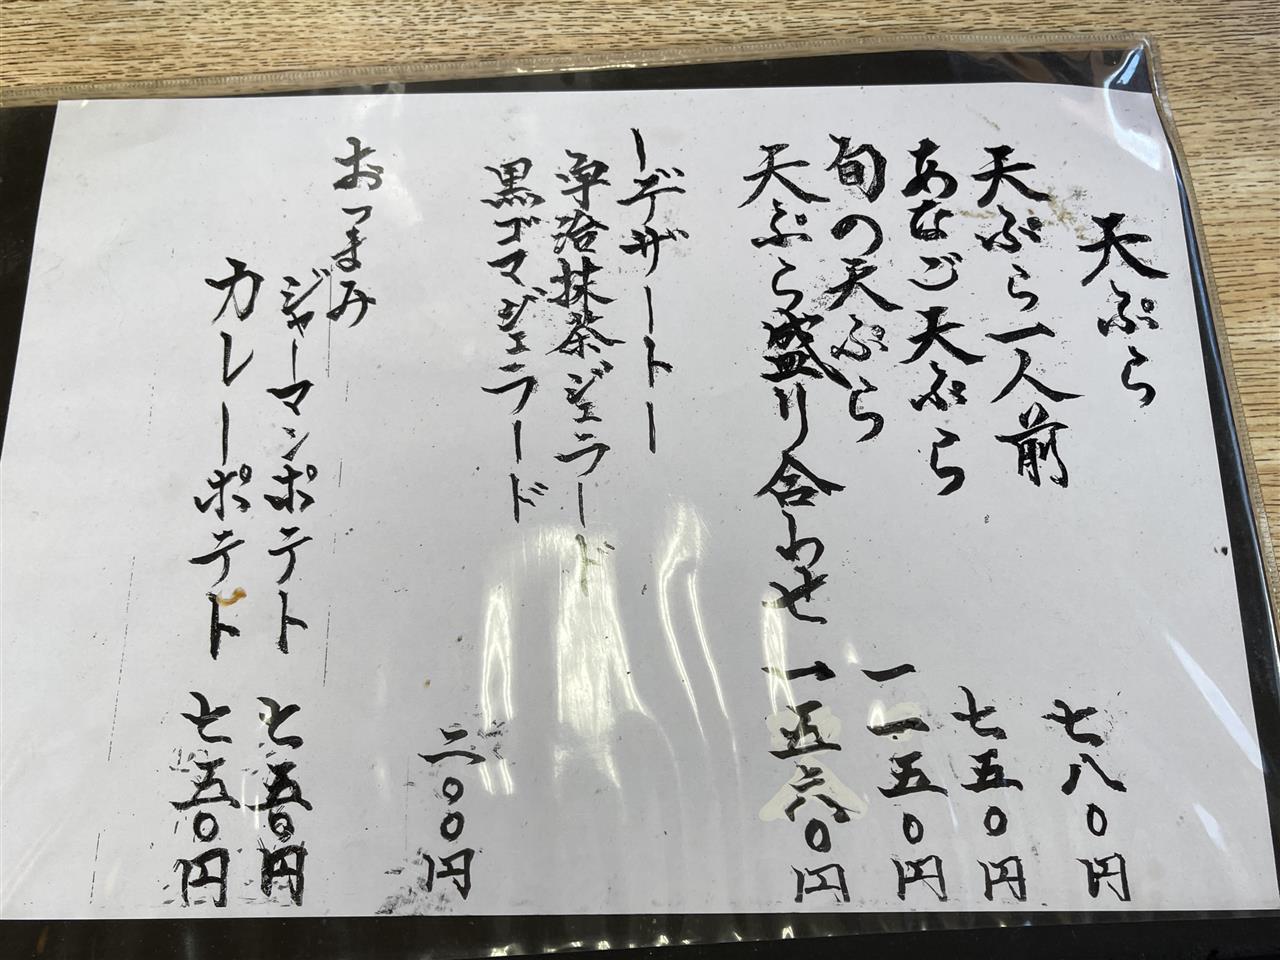 天ぷら
天ぷら一人前 七八〇円
あなご天ぷら 七五〇円
旬の天ぷら 一一五〇円
天ぷら盛り合わせ 一五六〇円
ーデザートー
宇治抹茶ジェラード
黒ゴマジェラード 二〇〇円
おつまみ
ジャーマンポテト 七五〇円
カレーポテト 七五〇円